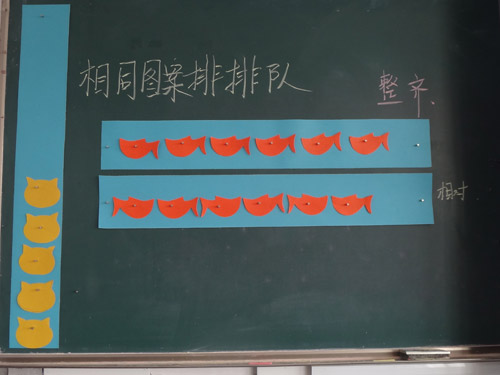 相同图案排排队
整齐、
相对